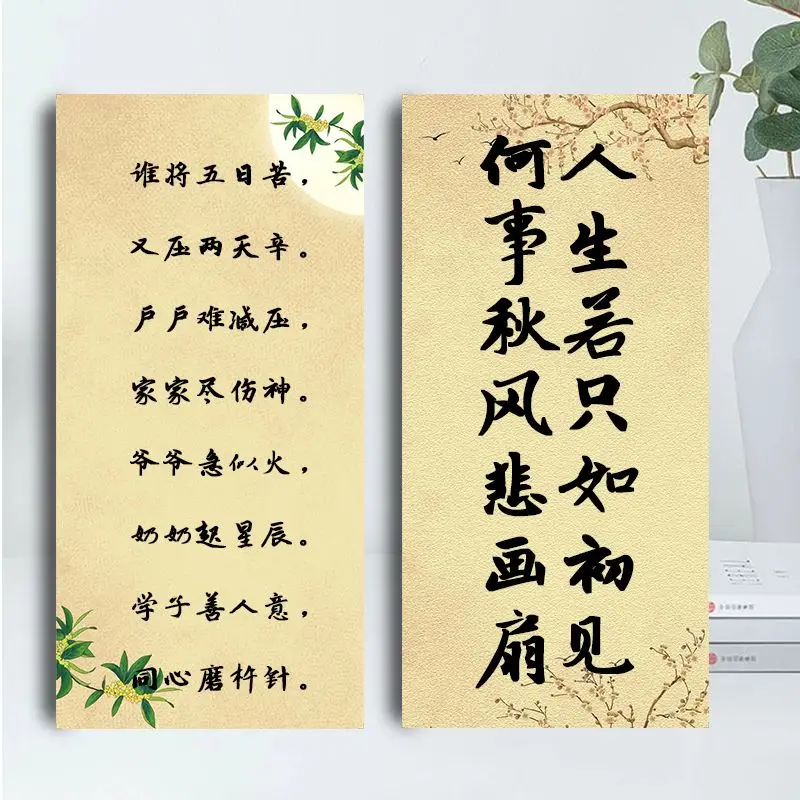 谁将五日苦，
又压两天辛。
户户难减压，
家家尽伤神。
爷爷急似火，
奶奶起星辰。
学子善人意，
同心磨杵针。
人生若只如初见
何事秋风悲画扇